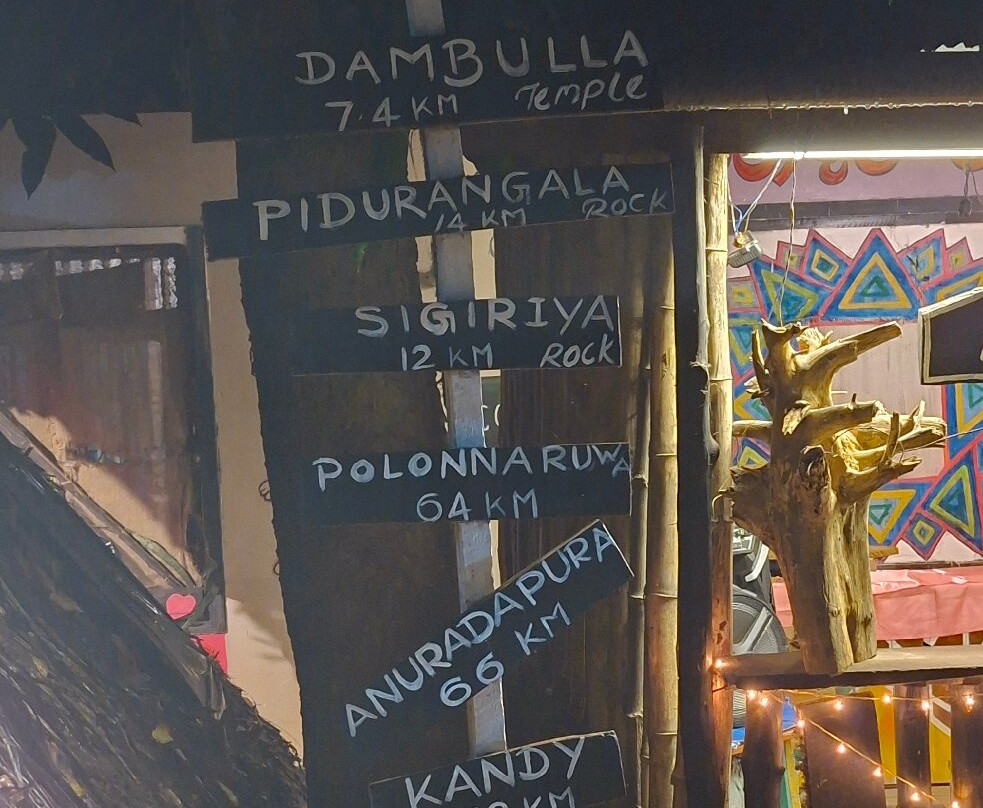 DAMBULLA
7.4 KM Temple
PIDURANGALA
14 KM ROCK
SIGIRIYA
12 KM ROCK
POLONNARUWA
64 KM
ANURADAPURA
66 KM
KANDY
KM